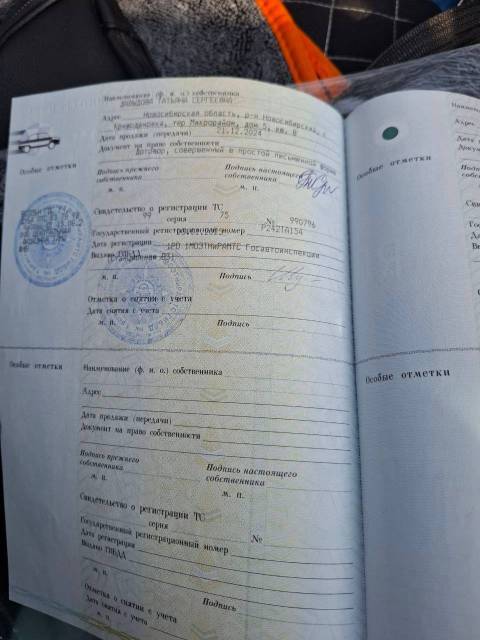 Наименование (ф. и. о.) собственника
ТАТЬЯНА СЕРГЕЕВНА
Адрес Новосибирская область, р-н Новосибирский, с
Криводановка, тер Микрорайон, дом 5, кв. 8
Дата продажи (передачи) 21.12.2024
Документ на право собственности
Договор, совершенный в простой письменной форме
Особые отметки
Подпись прежнего собственника
Подпись настоящего собственника
м. п.
м. п.
Свидетельство о регистрации ТС
99 серия 75 № 990796
Государственный регистрационный номер Р242ТА154
Дата регистрации
Выдано ГИБДД
Госавтоинспекции
м. п.
Подпись
Отметка о снятии с учета
Дата снятия с учета
м. п.
Подпись
Особые отметки
Наименование (ф. и. о.) собственника
Адрес
Дата продажи (передачи)
Документ на право собственности
Подпись прежнего собственника
Подпись настоящего собственника
м. п.
Свидетельство о регистрации ТС
серия №
Государственный регистрационный номер
Дата регистрации
Выдано ГИБДД
м. п.
Отметка о снятии с учета
Дата снятия с учета
м. п.
Подпись
Особые отметки
Особые отметки